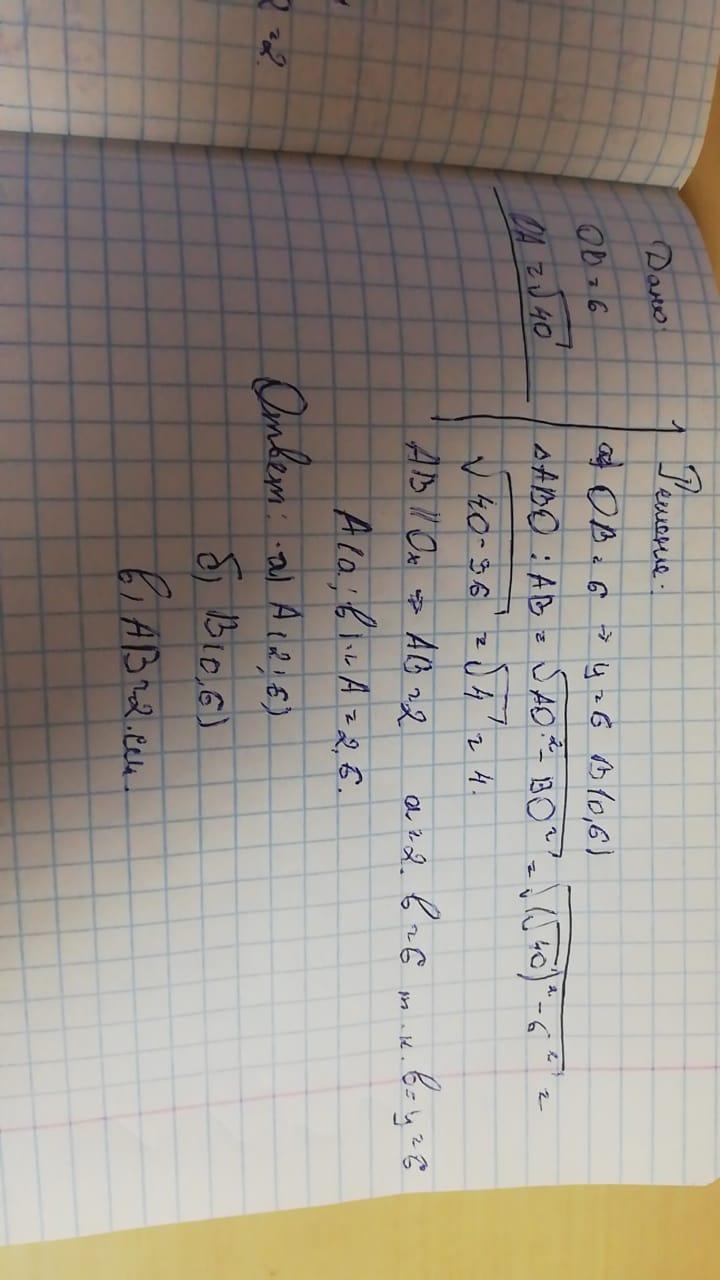 =2.
Дано:
OB = 6
OA = √40
Решение:
а) OB = 6 → y = 6 B(0,6)
△ABO : AB = √AO² - BO² = √(√40)² - 6² =
√40-36 = √4 = 4.
AB || Ox ⇒ AB = 2 a = 2. b = 6 т.к. b = y = 6
A(a; b) = A = 2, 6.
Ответ: а) A(2; 6)
б) B(0,6)
в) AB = 2 см.